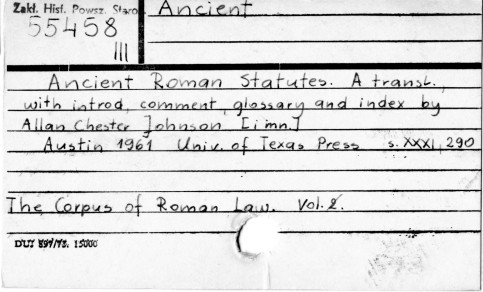 Zakł. Hist. Powsz. Staro
55458
III
Ancient
Ancient Roman Statutes. A transl.,
with introd, comment, glossary and index by
Allan Chester Johnson [i mn.]
Austin 1961 Univ. of Texas Press s. XXXI, 290
The Corpus of Roman Law. Vol. 2.